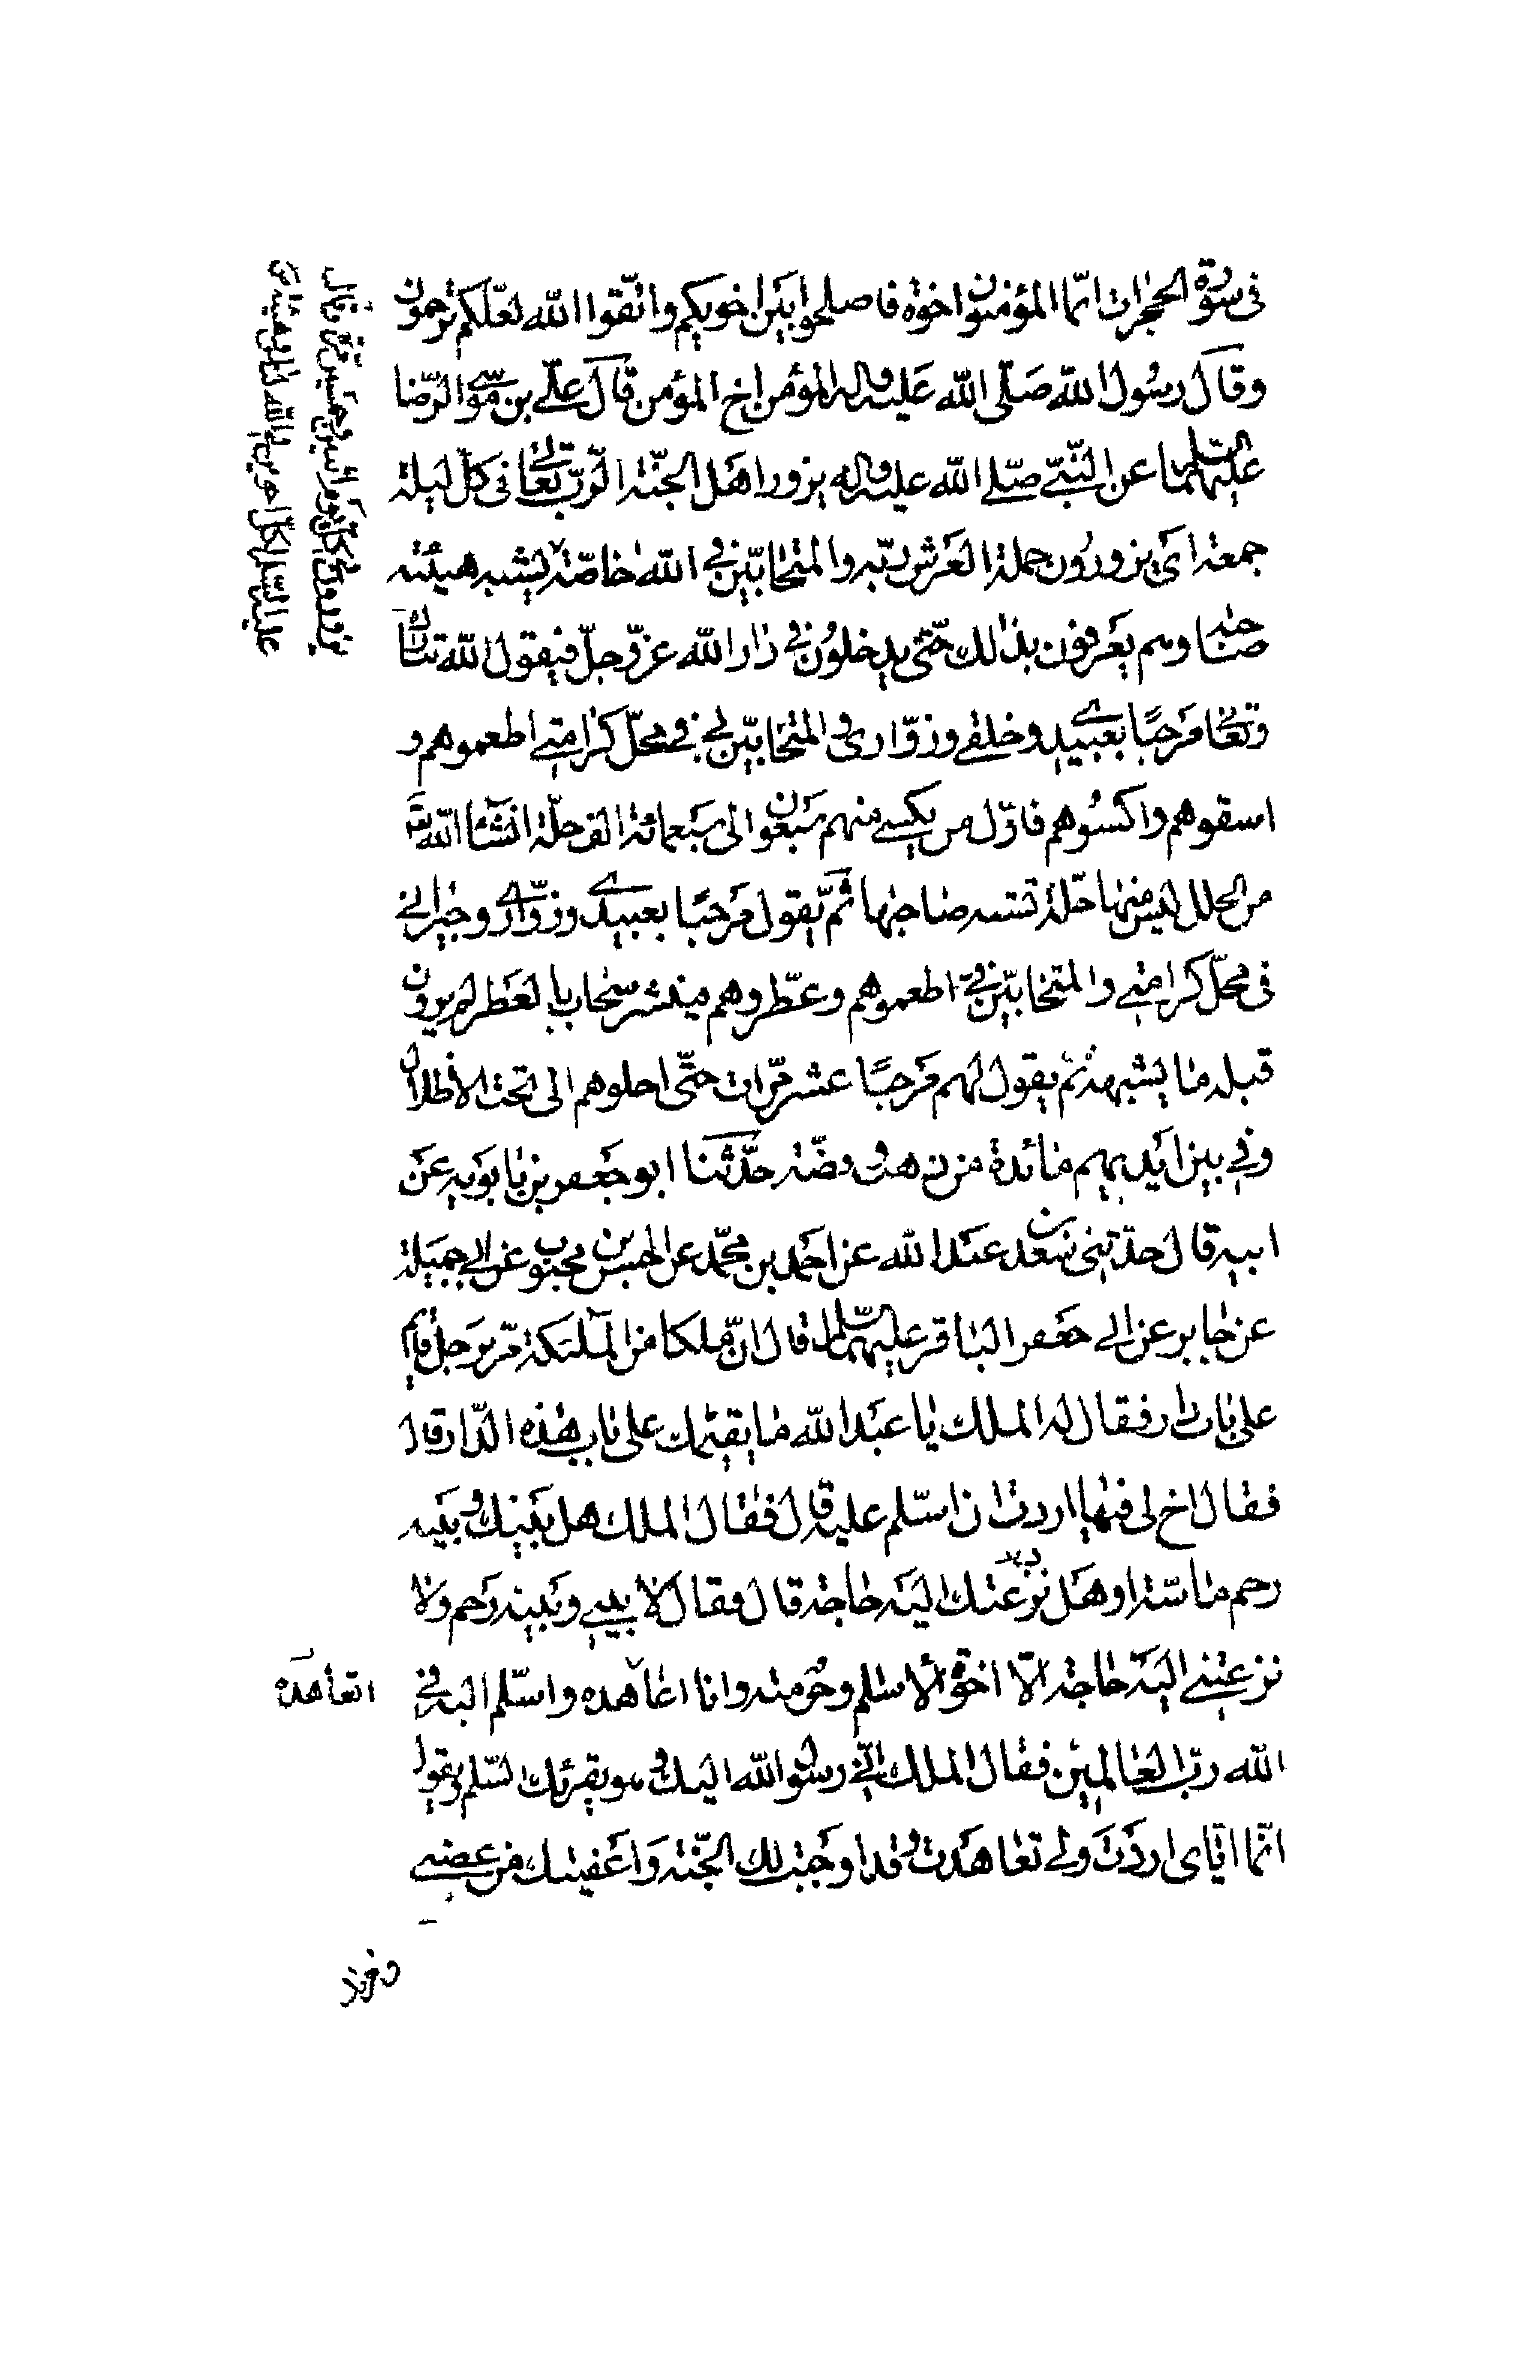 فى سورة الحجرات انّما المؤمنون اخوة فاصلحوا بين اخويكم واتّقوا الله لعلّكم ترحمون
وقال رسول الله صَلّى الله عَليه واله المؤمن اخ المؤمن قال علىّ بن موسى الرّضا
عليهما السّلم عن النّبىّ صلّى الله عليه واله يزور اهل الجنّة الرّبّ تعالى فى كلّ ليلة
جمعة اى يزورون حملة العرش ربّه والمتحابّين فى الله خاصّة يشبه هيئته
صاحبه وهم يعرفون بذلك حتّى يدخلون فى دار الله عزّ وجلّ فيقول الله تبارك
وتعالى مرحبًا بعبيدى وخلقى وزوّارى والمتحابّين لى فى محلّ كرامتى اطعموهم و
اسقوهم واكسُوهم فاوّل من يكسى منهم سبعون الى سبعمائة الف حلّة انشأ الله
من الحلل ليس منها حلّة تشبه صاحبها ثمّ يقول مرحبًا بعبيدى وزوّارى وجيرانى
فى محلّ كرامتى والمتحابّين فىّ اطعموهم وعطّروهم فينشر سحاب بالعطر لم يرون
قبله ما يشبهه ثم يقول لهم مرحبًا عشر مرّات حتّى احلوهم الى تحت الاظلال
وفى بين ايديهم مائدة من ذهب وفضّة حدّثنا ابو جعفر بن بابويه عن
ابيه قال حدّثنى سعد بن عبد الله عن احمد بن محمّد عن الحسن بن محبوب عن ابى جميلة
عن جابر عن ابى جعفر الباقر عليهما السّلم قال انّ ملكا من الملئكة مرّ برجل قايم
على باب دار فقال له الملك يا عبد الله ما يقيمك على باب هذه الدّار قال
فقال اخ لى فيها اردت ان اسلّم عليه قال فقال الملك هل بينك وبينه
رحم ماسّة او هل نزعتك اليه حاجة قال فقال لا بينى وبينه رحم ولا
نزعتنى اليه حاجة الّا اخوّة الاسلم وحرمته وانا اتعاهده واسلّم اليه فى
الله ربّ العالمين فقال الملك انّى رسول الله اليك وهو يقرئك السّلم ويقول
انّما ايّاى اردت ولى تعاهدت وقد اوجبت لك الجنّة واعفيتك من غضبى
اتعاهده